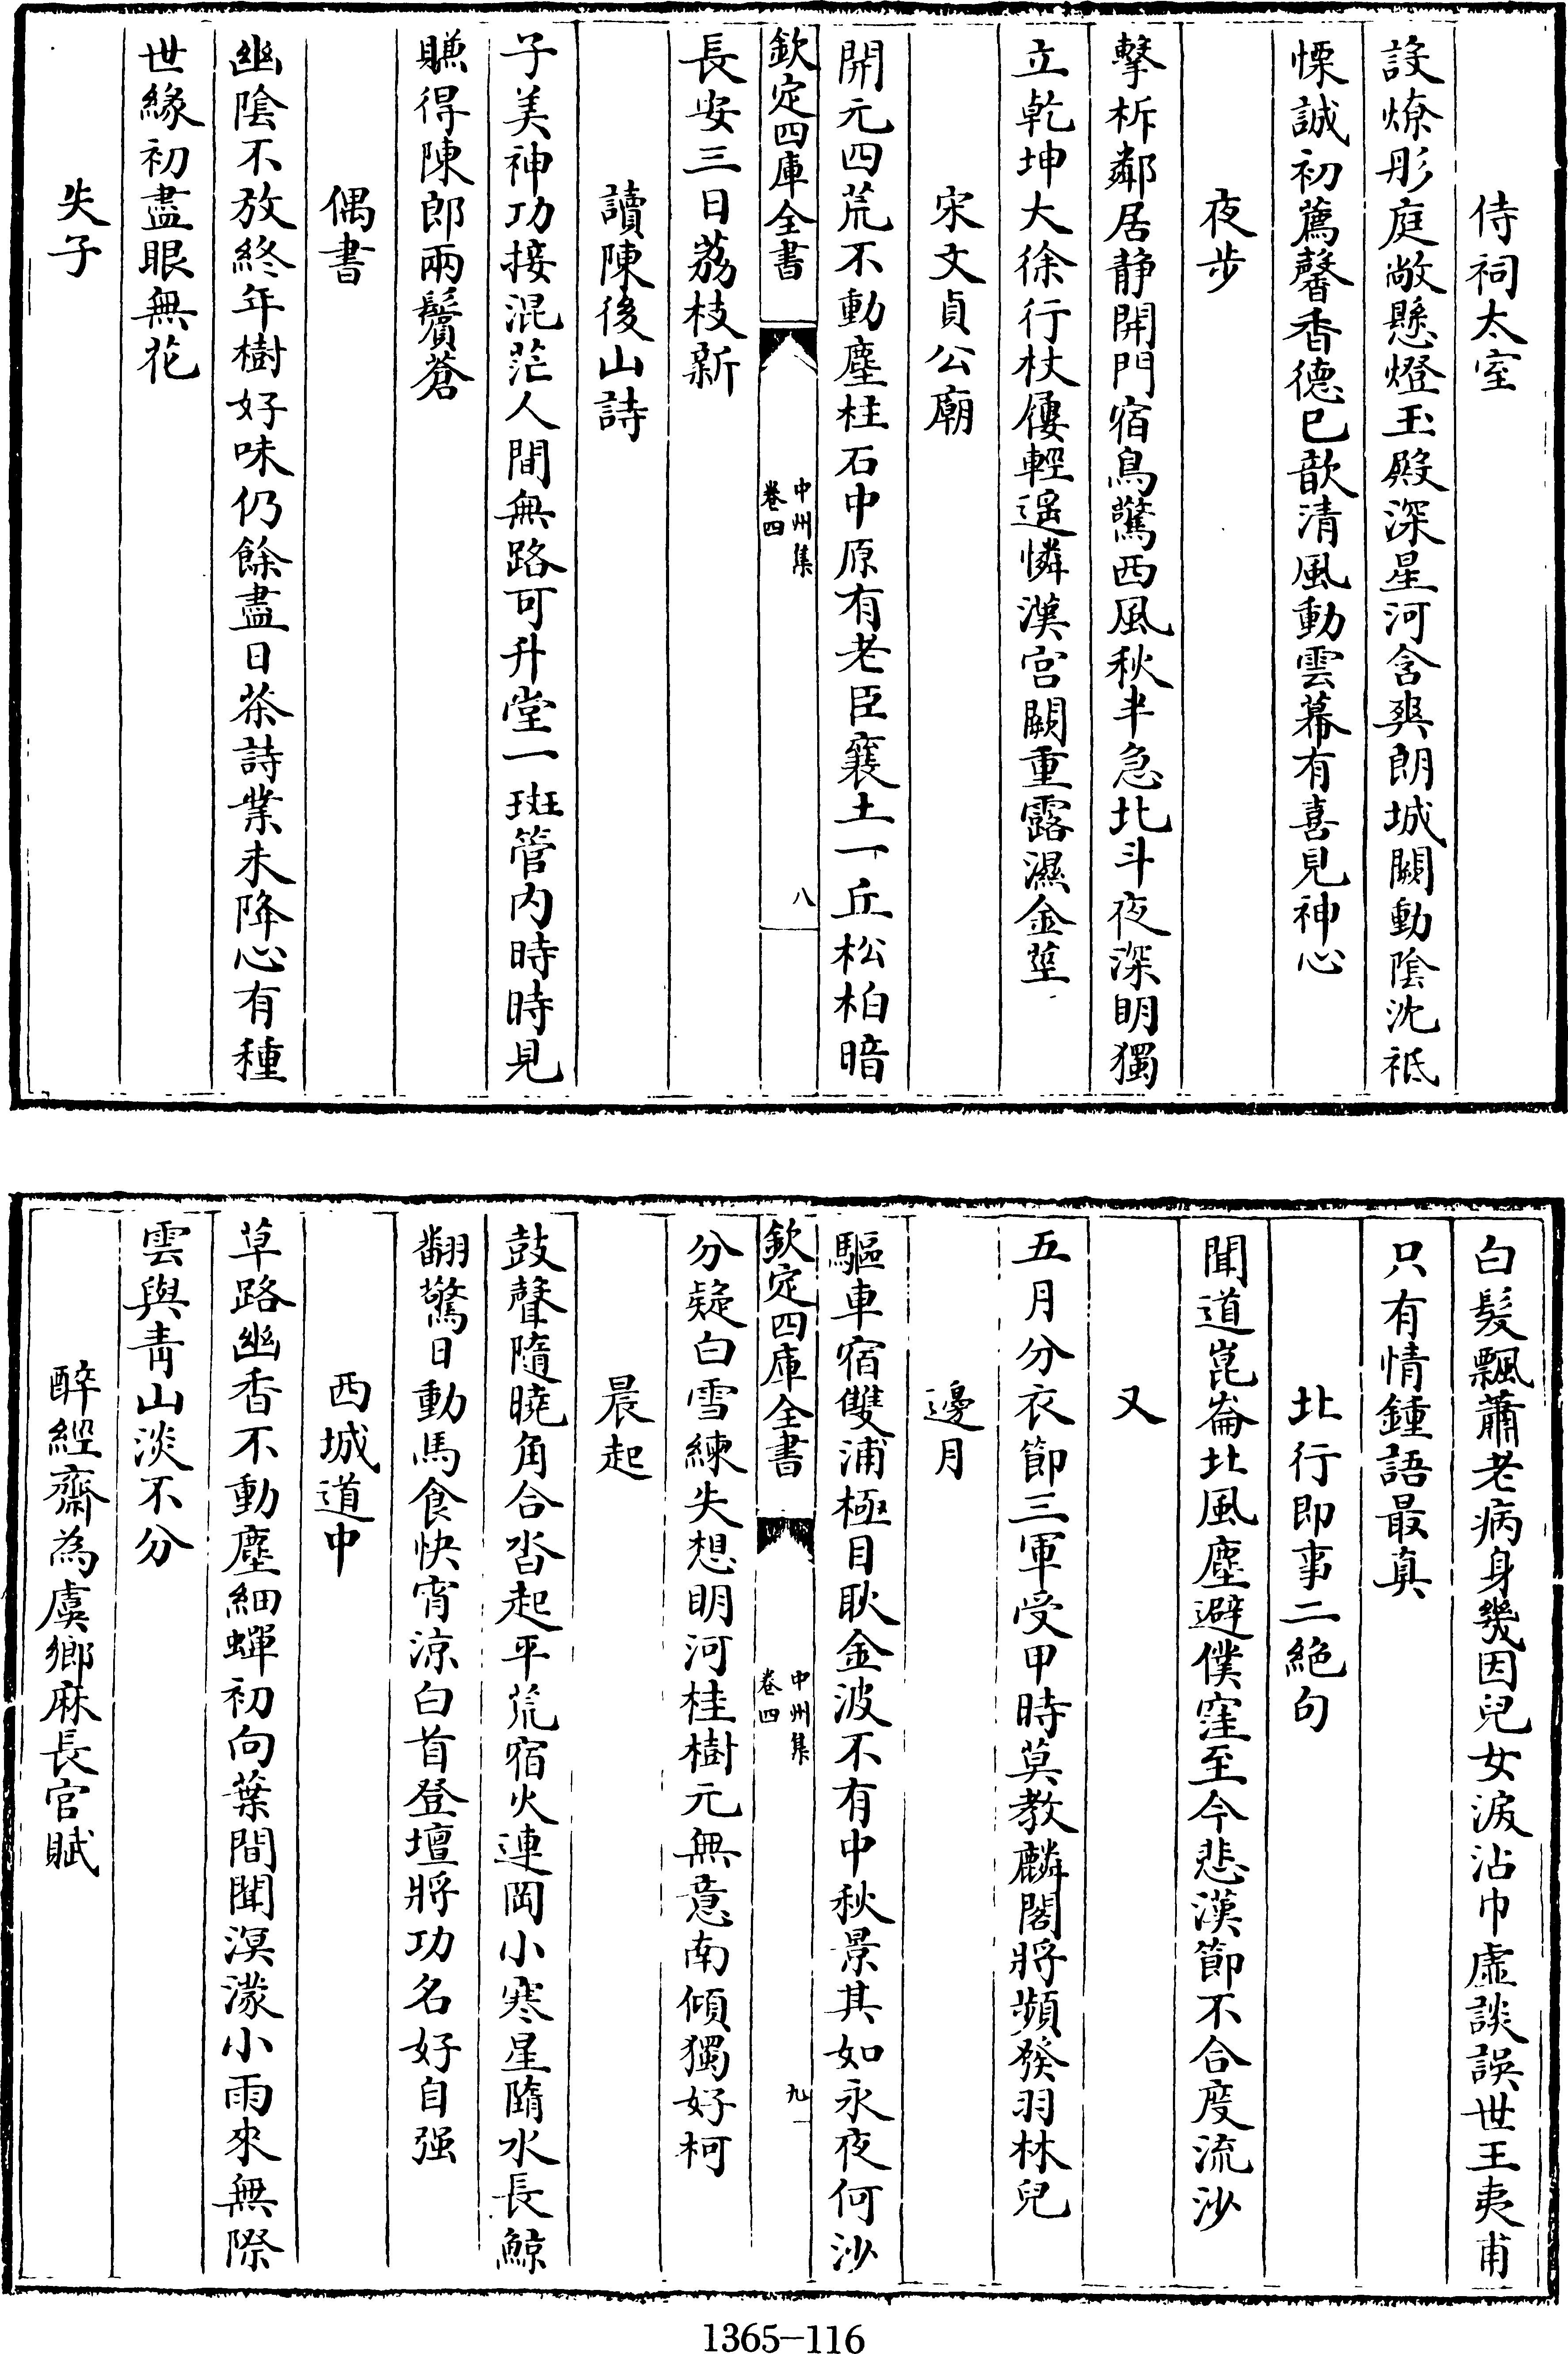 侍祠太室
設燎彤庭敞懸燈玉殿深星河含爽朗城闕動陰沈祗
慄誠初薦馨香德已歆清風動雲幕有喜見神心
夜步
擊柝鄰居静開門宿鳥驚西風秋半急北斗夜深明獨
立乾坤大徐行杖屨輕遥憐漢宫闕重露濕金莖
宋文貞公廟
開元四荒不動塵柱石中原有老臣襄土一丘松柏暗
欽定四庫全書
中州集
卷四
八
長安三日荔枝新
讀陳後山詩
子美神功接混茫人間無路可升堂一斑管内時時見
賺得陳郎兩鬢蒼
偶書
幽陰不放終年樹好味仍餘盡日茶詩業未降心有種
世緣初盡眼無花
失子
白髮飄蕭老病身幾因兒女淚沾巾虛談誤世王夷甫
只有情鍾語最真
北行即事二絶句
聞道崑崙北風塵避僕窪至今悲漢節不合度流沙
又
五月分衣節三軍受甲時莫教麟閣將頻發羽林兒
邊月
驅車宿雙浦極目耿金波不有中秋景其如永夜何沙
欽定四庫全書
中州集
卷四
九
分疑白雪練失想明河桂樹元無意南傾獨好柯
晨起
鼓聲隨曉角合沓起平荒宿火連岡小寒星隋水長鯨
翻驚日動馬食快宵涼白首登壇將功名好自强
西城道中
草路幽香不動塵細蟬初向葉間聞溟濛小雨來無際
雲與青山淡不分
醉經齋為虞鄉麻長官賦
1365-116